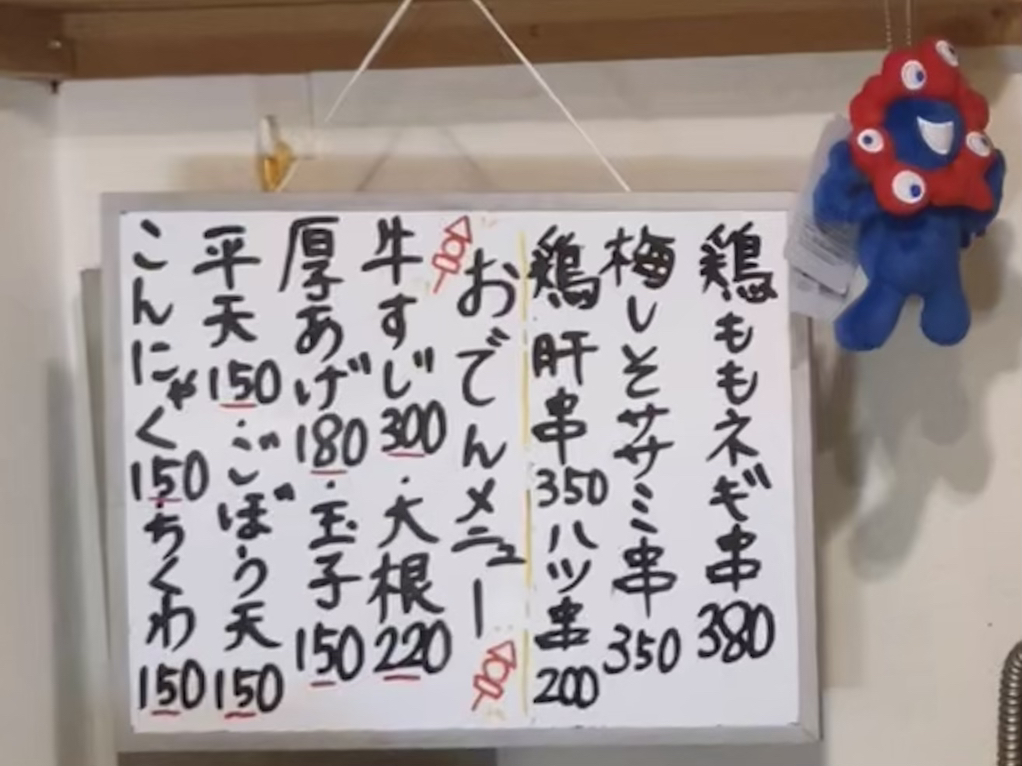 鶏ももネギ串380
梅しそササミ串350
鶏肝串350ハツ串200
おでんメニュー
牛すじ300・大根220
厚あげ180・玉子150
平天150・ごぼう天150
こんにゃく150・ちくわ150